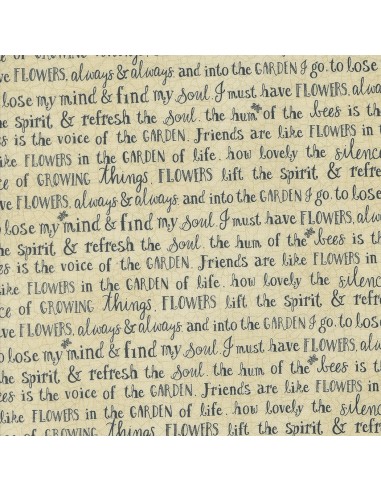 of GROWING things. FLOWERS lift the Spirit & refresh
ve FLOWERS, always & always and into the GARDEN I go, to lose
lose my mind & find my Soul. I must have FLOWERS, alwa
the Spirit & refresh the Soul. the hum of the bees is the
s is the voice of the GARDEN. Friends are like FLOWERS in t
ike FLOWERS in the GARDEN of life. how lovely the silence
ce of GROWING things. FLOWERS lift the Spirit & refre
ve FLOWERS, always & always and into the GARDEN I go, to lose
o lose my mind & find my Soul. I must have FLOWERS, alwa
the Spirit & refresh the Soul. the hum of the bees is the
es is the voice of the GARDEN. Friends are like FLOWERS in t
like FLOWERS in the GARDEN of life. how lovely the silenc
ce of GROWING things. FLOWERS lift the Spirit & refr
ve FLOWERS, always & always and into the GARDEN I go, to los
o lose my mind & find my Soul. I must have FLOWERS, alw
the Spirit & refresh the Soul. the hum of the bees is the
es is the voice of the GARDEN. Friends are like FLOWERS in
like FLOWERS in the GARDEN of life. how lovely the silenc
ce of GROWING things. FLOWERS lift the Spirit & refr